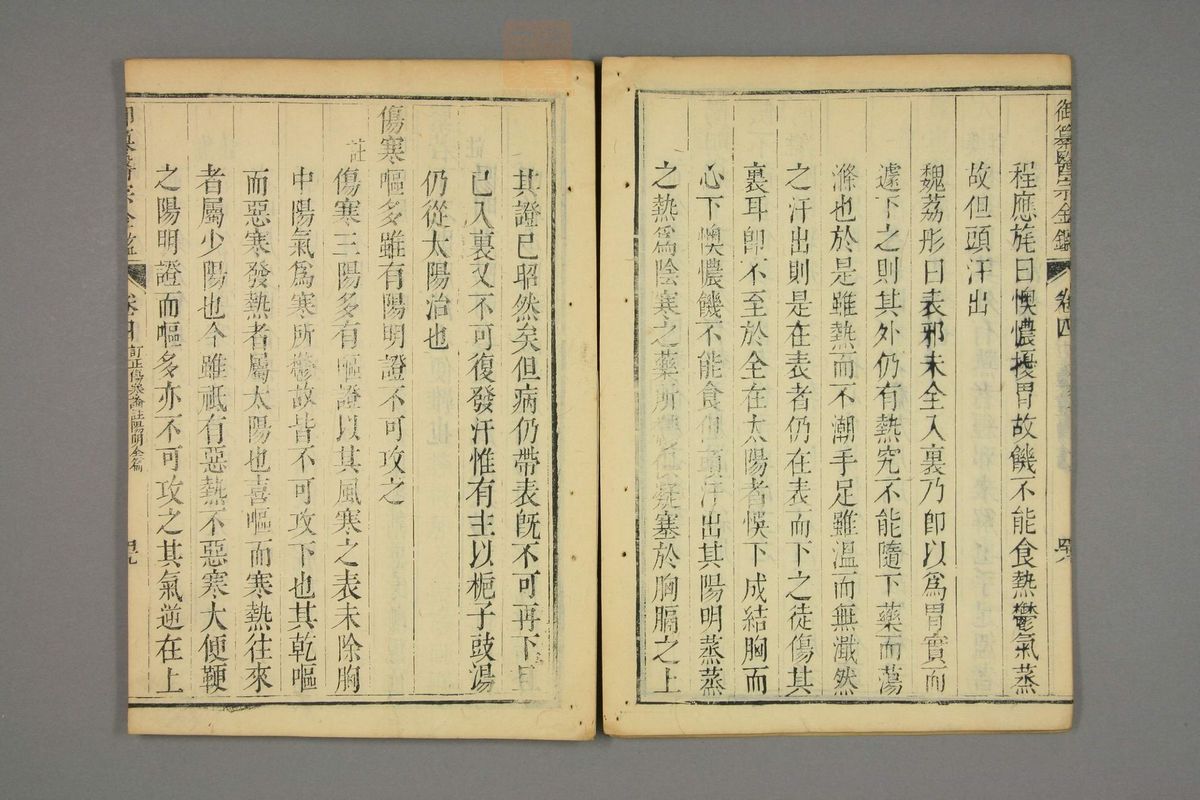 御纂醫宗金鑑
卷四
程應旄曰懊憹擾胃故饑不能食熱鬱氣蒸
故但頭汗出
魏荔彤曰表邪未全入裏乃卽以爲胃實而
遽下之則其外仍有熱究不能隨下藥而蕩
滌也於是雖熱而不潮手足雖溫而無濈然
之汗出則是在表者仍在表而下之徒傷其
裏耳卽不至於全在太陽者悞下成結胸而
心下懊憹饑不能食但頭汗出其陽明蒸蒸
之熱爲陰寒之藥所凝塞於胸膈之上
其證已昭然矣但病仍帶表旣不可再下且
已入裏又不可復發汗惟有主以梔子豉湯
仍從太陽治也
傷寒嘔多雖有陽明證不可攻之
註
傷寒三陽多有嘔證以其風寒之表未除胸
中陽氣爲寒所鬱故皆不可攻下也其乾嘔
而惡寒發熱者屬太陽也喜嘔而寒熱往來
者屬少陽也今雖祗有惡熱不惡寒大便鞕
之陽明證而嘔多亦不可攻之其氣逆在上
醫宗金鑑
訂正傷寒論註陽明全篇